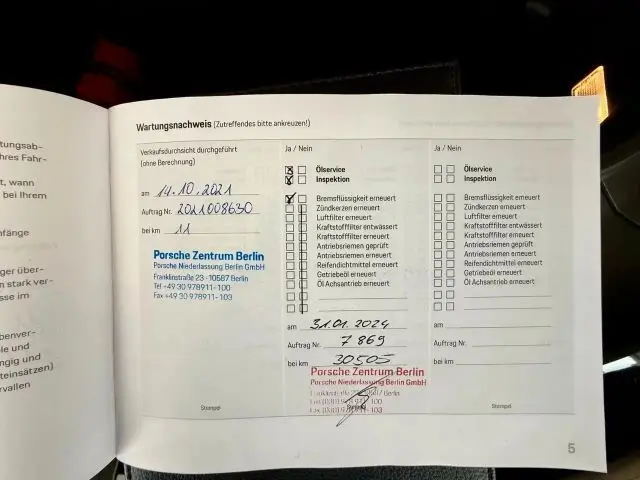 tungsab-
hres Fahr-
t, wann
bei Ihrem
nfänge
ger über-
n stark ver-
sse im
benver-
le und
ngig und
teinsätzen)
vallen
Wartungsnachweis (Zutreffendes bitte ankreuzen!)
Verkaufsdurchsicht durchgeführt
(ohne Berechnung)
am 14.10.2021
Auftrag Nr. 2021008630
bei km 11
Porsche Zentrum Berlin
Porsche Niederlassung Berlin GmbH
Franklinstraße 23 · 10587 Berlin
Tel +49 30 978911-100
Fax +49 30 978911-103
Stempel
Ja / Nein
Ölservice
Inspektion
Bremsflüssigkeit erneuert
Zündkerzen erneuert
Luftfilter erneuert
Kraftstofffilter entwässert
Kraftstofffilter erneuert
Antriebsriemen geprüft
Antriebsriemen erneuert
Reifendichtmittel erneuert
Getriebeöl erneuert
Öl Achsantrieb erneuert
am 31.01.2024
Auftrag Nr. 7869
bei km 30505
Porsche Zentrum Berlin
Porsche Niederlassung Berlin GmbH
Berlin
Stempel
Ja / Nein
Ölservice
Inspektion
Bremsflüssigkeit erneuert
Zündkerzen erneuert
Luftfilter erneuert
Kraftstofffilter entwässert
Kraftstofffilter erneuert
Antriebsriemen geprüft
Antriebsriemen erneuert
Reifendichtmittel erneuert
Getriebeöl erneuert
Öl Achsantrieb erneuert
am
Auftrag Nr.
bei km
Stempel
5